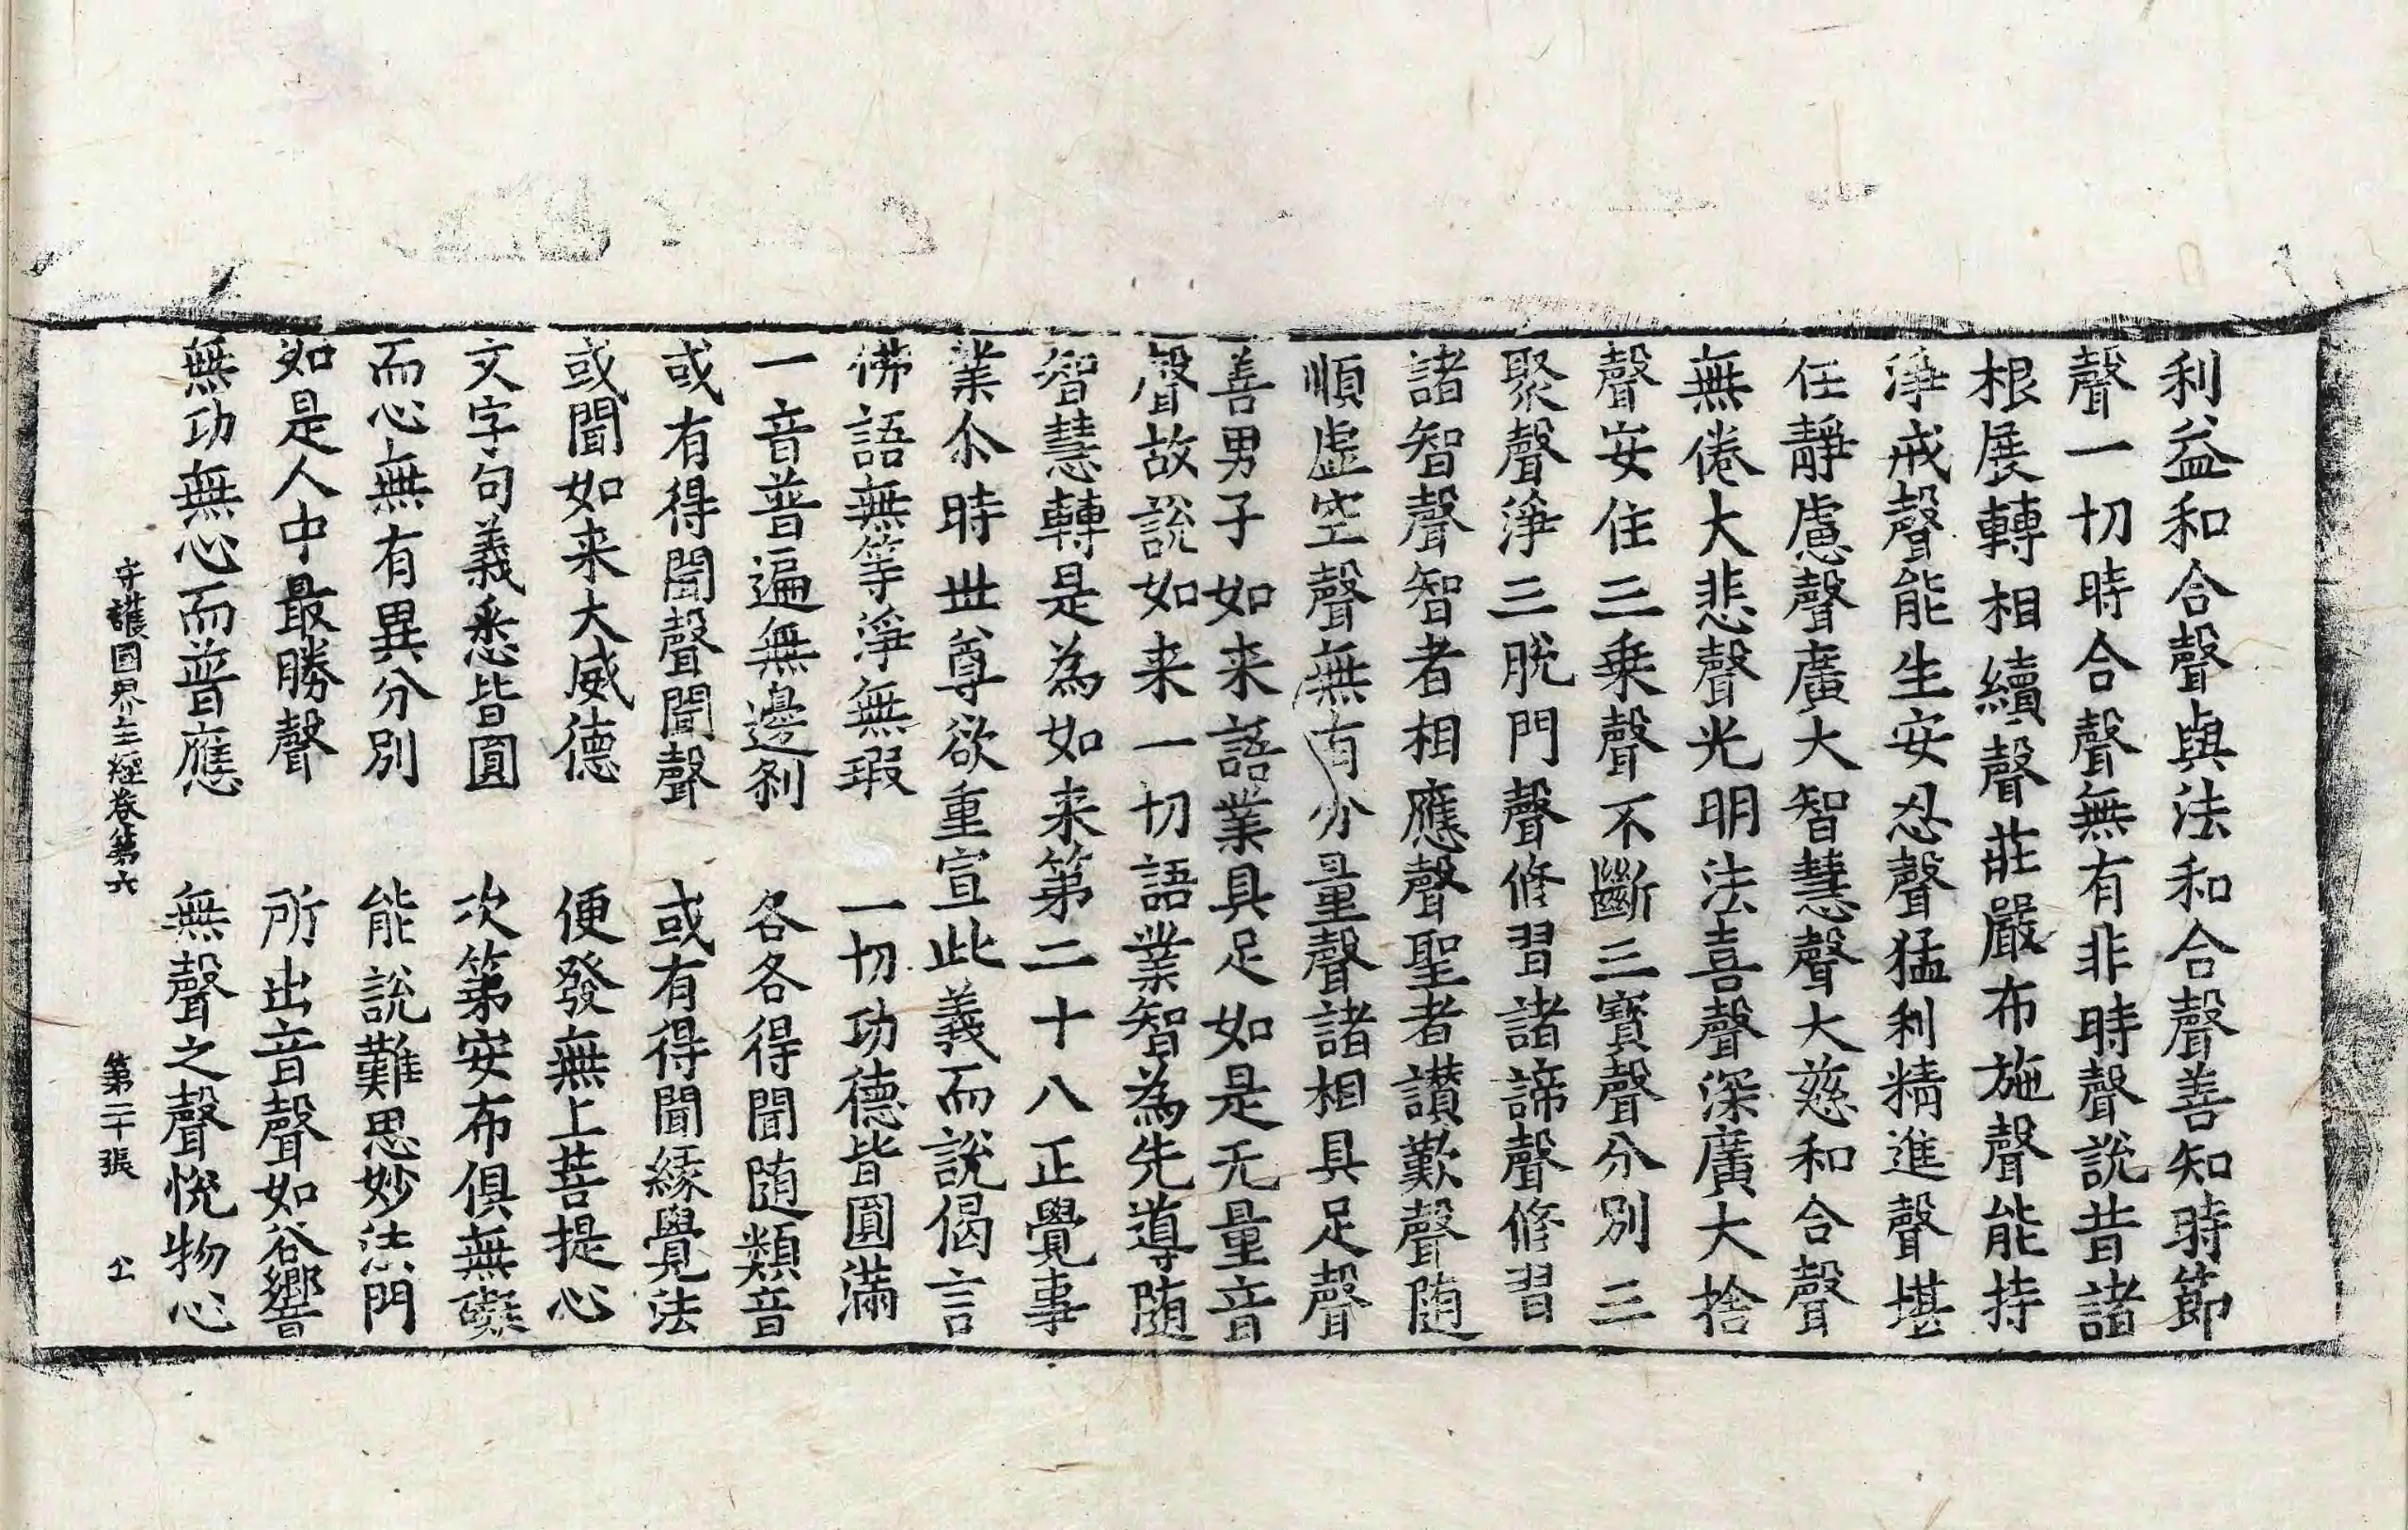 利益和合聲與法和合聲善知時節
聲一切時合聲無有非時聲說昔諸
根展轉相續聲莊嚴布施聲能持
淨戒聲能生安忍聲猛利精進聲堪
任靜慮聲廣大智慧聲大慈和合聲
無倦大悲聲光明法喜聲深廣大捨
聲安住三乗聲不斷三寶聲分別三
聚聲淨三脫門聲修習諸諦聲修習
諸智聲智者相應聲聖者讃歎聲随
順虛空聲無有分量聲諸相具足聲
善男子如来語業具足如是无量音
聲故說如来一切語業智為先導随
智慧轉是為如来第二十八正覺事
業尒時世尊欲重宣此義而說偈言
佛語無等淨無瑕　一切功德皆圓滿
一音普遍無邊剎　各各得聞随類音
或有得聞聲聞聲　或有得聞緣覺法
或聞如来大威德　便發無上菩提心
文字句義悉皆圓　次第安布俱無礙
而心無有異分別　能說難思妙法門
如是人中最勝聲　所出音聲如谷響
無功無心而普應　無聲之聲悅物心
守護國界主經卷第六　第二十張